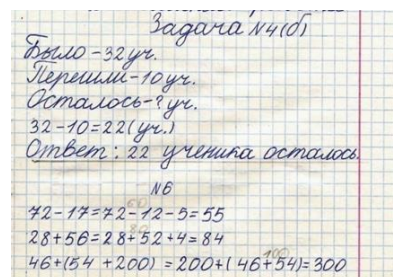 Задача №4(б)
Было-32уч.
Перешли-10уч.
Осталось-? уч.
32-10=22(уч.)
Ответ: 22 ученика осталось.
№6
60
72-17=72-12-5=55
80
28+56=28+52+4=84
100
46+(54 +200) =200+(46+54)=300